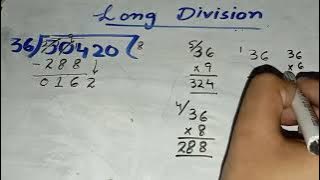 Long Division
36)30420(8
- 288
0162
36
× 9
324
36
× 8
288
36
36
× 6